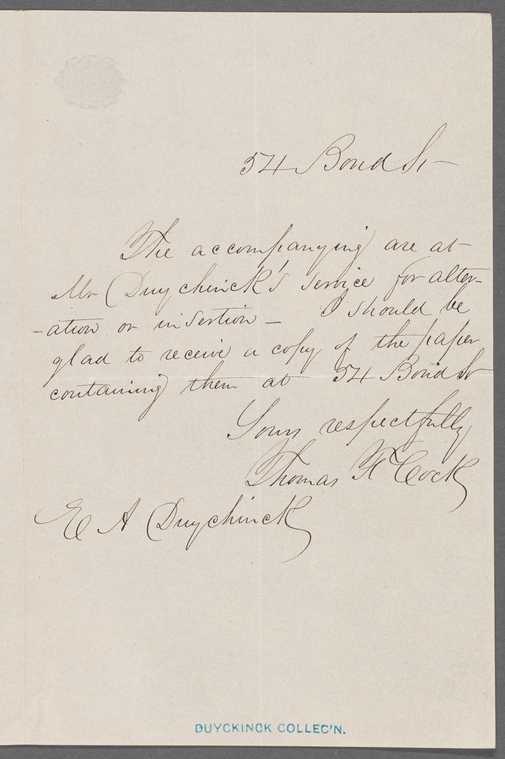 54 Bond St —
The accompanying are at
Mr Duychinck's service for alter-
-ation or insertion — I should be
glad to receive a copy of the paper
containing them at 54 Bond St
Yours respectfully
Thomas F Cock
E A Duychinck
DUYCKINCK COLLEC'N.